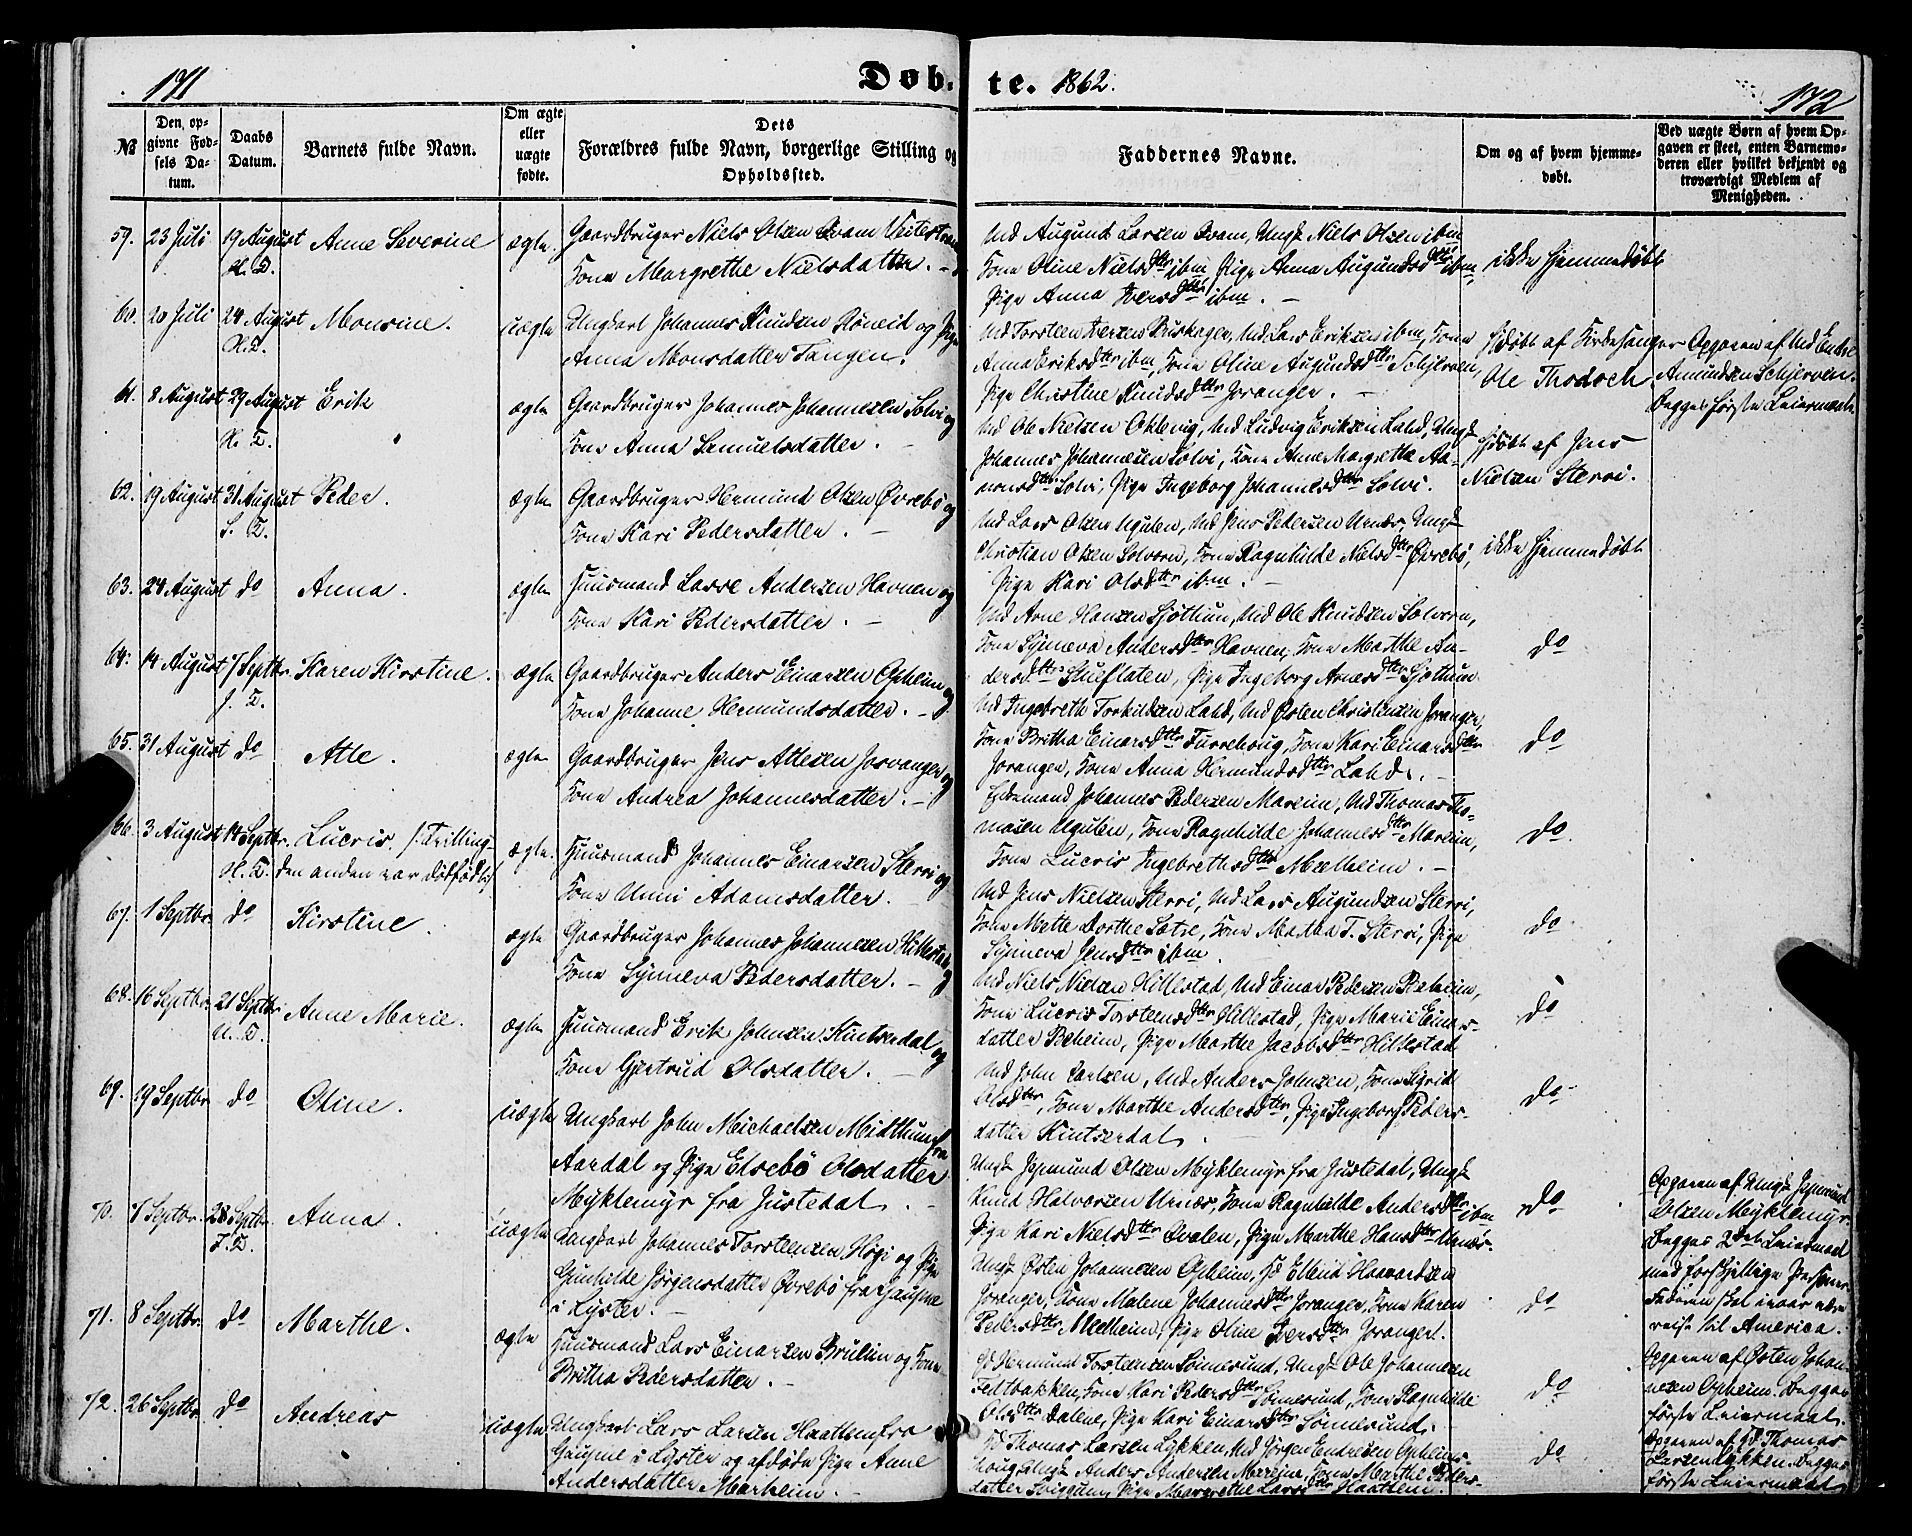 171
Døb-
te. 1862.
172
№
Den opgivne Fødsels Datum.
Daabs Datum.
Barnets fulde Navn.
Om ægte eller uægte fødte.
Dets Forældres fulde Navn, borgerlige Stilling og Opholdssted.
Faddernes Navne.
Om og af hvem hjemmedøbt.
Ved uægte Børn af hvem Opgaven er skeet, enten Barnemoderen eller hvilket bekjendt og troværdigt Medlem af Menigheden.
59. 23 Juli 19 August Anne Severine ægte. Gaardbruger Niels Olsen Kvam
Kone Margrethe Nielsdatter. -
Md Augund Larsen Kvam, Ungk Niels Olsen ibm
Kone Oline Nielsdttr ibm, Pige Anna Augundsdttr ibm,
Pige Anna Iversdttr ibm. -
ikke hjemmedøbt
60. 20 Juli 24 August Monsine. uægte Ungkarl Johannes Knudsen Røneid og Pige
Anna Monsdatter Tangen.
Md Torsteen Iversen, Md Lars Eriksen ibm, Kone
Anna Eriksdttr ibm, Kone Oline Augundsdttr Schjerven,
Pige Christine Knudsdttr Joranger. -
hjdøbt af Kirkesanger
Ole Thodoch.
Opgaven af Md Endre
Amundsen Schjerven.
Begges første Leiermaal.
61. 8 August 29 August Erik ægte Gaardbruger Johannes Johannesen Solvi og
Kone Anna Samuelsdatter. -
Md Ole Nielsen, Md Ludvig Eriksen Lahd, Ungk
Johannes Johannesen Solvi, Kone Anne Margrethe Aa-
Solvi, Pige Ingeborg Johannesdttr Solvi.
hjdøbt af Jens
Nielsen Sterri.
62. 19 August 31 August Peder. ægte Gaardbruger Hermund Olsen Øvrebø og
Kone Kari Pedersdatter. -
Md Lars Olsen Ugulen, Md Jens Pedersen Urnæs, Ungk
Christian Olsen Solvorn, Kone Ragnhilde Nielsdttr Øvrebø,
Pige Kari Olsdttr ibm. -
ikke hjemmedøbt
63. 24 August do Anna. ægte Huusmand Lasse Andersen Havnen og
Kone Kari Pedersdatter. -
Md Arne Hansen Sjøthun, Md Ole Knudsen Solvorn,
Kone Synneva Andersdttr Havnen, Kone Marthe An-
dersdttr Stueflaten, Pige Ingeborg Arnesdttr Sjøthun
do
64. 14 August 7 Septbr. Karen Kirstine. ægte Gaardbruger Anders Einarsen Opheim og
Kone Johanne Hermundsdatter. -
Md Ingebreth Torkildsen Lahd, Md Østen Christensen Joranger,
Kone Britha Einarsdttr Furrehoug, Kone Kari Einarsdttr
Joranger, Kone Anna Hermundsdttr Lahd. -
do
65. 31 August do Atle. ægte Gaardbruger Jens Atlesen Joranger og
Kone Andrea Johannesdatter. -
Johannes Pedersen Mareim, Md Thomas Tho-
masen Ugulen, Kone Ragnhilde Johannesdttr Mareim,
Kone Lucris Ingebrethsdttr Mælheim. -
do
66. 3 August 14 Septbr. Lucris. /: Tvilling
den anden var dødfødt :/ ægte. Huusmand Johannes Einarsen Sterri og
Kone Unni Adamsdatter. -
Md Jens Nielsen Sterri, Md Lars Augundsen Sterri,
Kone Mette Dorthe Sætre, Kone Martha T. Sterri, Pige
Synneva Jensdttr ibm.
do
67. 1 Septbr. do Kirstine. ægte Gaardbruger Johannes Johannesen Hillestad og
Kone Synneva Pedersdatter. -
Md Niels Nielsen Hillestad, Md Einar Pedersen Beheim,
Kone Lucris Torsteensdttr Hillestad, Pige Marie Einars-
datter Beheim, Pige Marthe Jacobsdttr Hillestad
do
68. 16 Septbr. 21 Septbr. Anne Marie. ægte Huusmand Erik Johnsen Kintserdal og
Kone Gjertrud Olsdatter. -
Md John Larssen, Md Anders Johnsen, Kone Sigrid
Olsdttr, Kone Marthe Andersdttr, Pige Ingeborg Peders-
datter Kintserdal. -
do
69. 19 Septbr. do Oline. uægte Ungkarl John Michaelsen Midthun fra
Aardal og Pige Elsebø Olsdatter
Myklemyr fra Justedal. -
Ungk Jesmund Olsen Myklemyr fra Justedal, Ungk
Knud Halvorsen Urnæs, Kone Ragnhilde Andersdttr ibm
Pige Kari Nielsdttr Qvalen, Pige Marthe Hansdttr Urnæs.
do
Opgaven af Ungk Jesmund
Olsen Myklemyr.
Begges 2det Leiermaal
med forskjellige Personer
Faderen skal ivaar være
reist til America.
70. 7 Septbr. 28 Septbr. Anna. uægte Ungkarl Johannes Torsteensen Høgi og Pige
Gunhilde Jørgensdatter Øvrebø fra Gaupne
i Lyster. -
Ungk Østen Johannesen Opheim, Gd Ellend Haavardsen
Joranger, Kone Malene Johannesdttr Joranger, Kone Karen
Pedersdttr Mælheim, Pige Oline Iversdttr Joranger.
do
Opgaven af Østen Johan-
nesen Opheim. Begges
første Leiermaal.
71. 8 Septbr. do Marthe. ægte Huusmand Lars Einarsen Bruliin og Kone
Britha Pedersdatter. -
Gd Hermund Torsteensen Sønnesund, Ungk Ole Johannesen
Feltbakken, Kone Kari Pedersdttr Sønnesund, Kone Ragnhilde
Olsdttr Dalene, Pige Kari Einarsdttr Sønnesund.
do
72. 26 Septbr. do Andreas uægte Ungkarl Lars Larsen Haatten fra
Gaupne i Lyster og afdøde Pige Anne
Andersdatter Marheim. -
Gd Thomas Larsen Lykken, Md Jørgen Endresen Opheims-
houg, Ungk Anders Andersen Mareim, Kone Marthe Peders-
datter, Pige Margrethe Larsdttr Haatten.
do
Opgaven af Gd Thomas
Larsen Lykken. Begges
første Leiermaal.